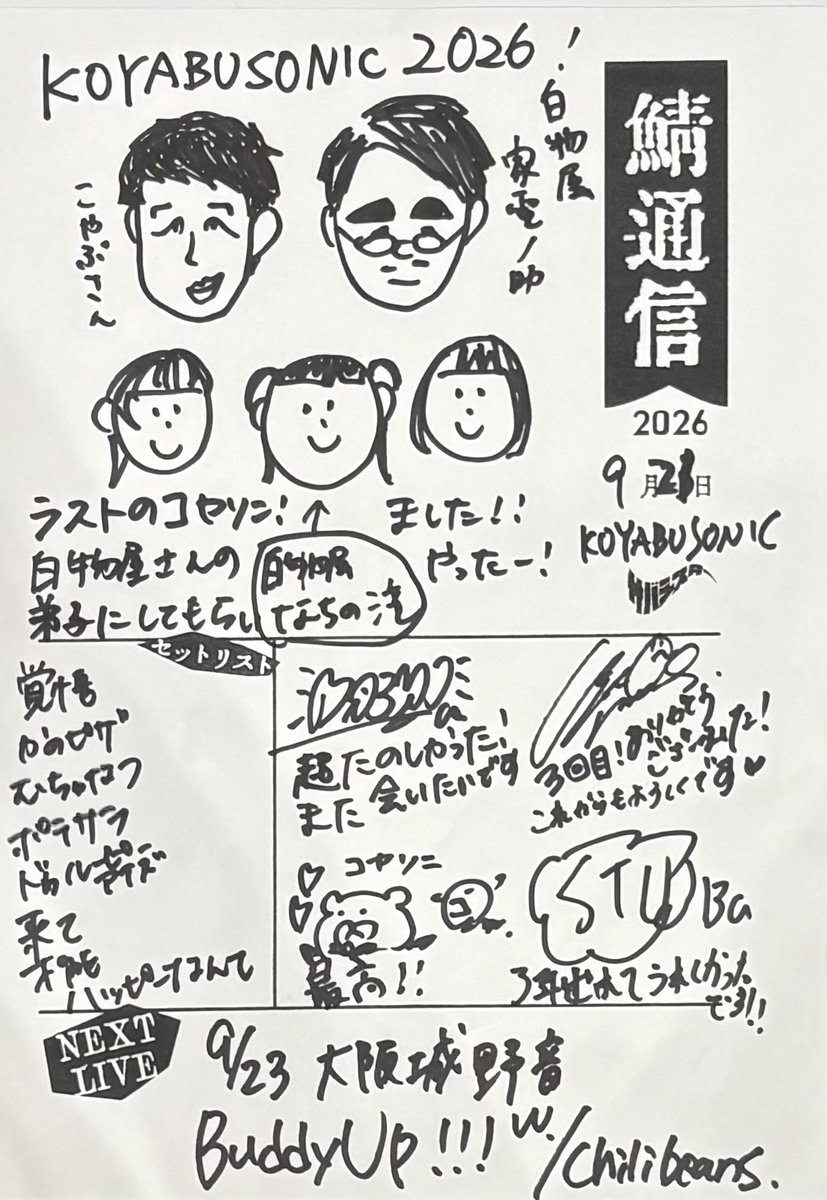 KOYABUSONIC 2026!
白物屋
家電ノ助
こやぶさん
鯖通信
2026
9月21日
KOYABUSONIC
サバシスター
ラストのコヤソニ!↑ ました!!
白物屋さんの 白物屋 やったー!
弟子にしてもらい たちの滝
セットリスト
覚悟
ヤのサカ
むちゃなつ
ポテサラ
ドゥルゲーズ
来て
才能
ハッピーなんて
超たのしかった!
また会いたいです
3回目!ありがとう
ございました!
これからもよろしくです♥
♡ コヤソニ
♡
最高!!
STU Ba
3年出れてうれしかった
です!!
NEXT
LIVE
9/23 大阪城野音
BuddyUp!!! w/Chilibeans.